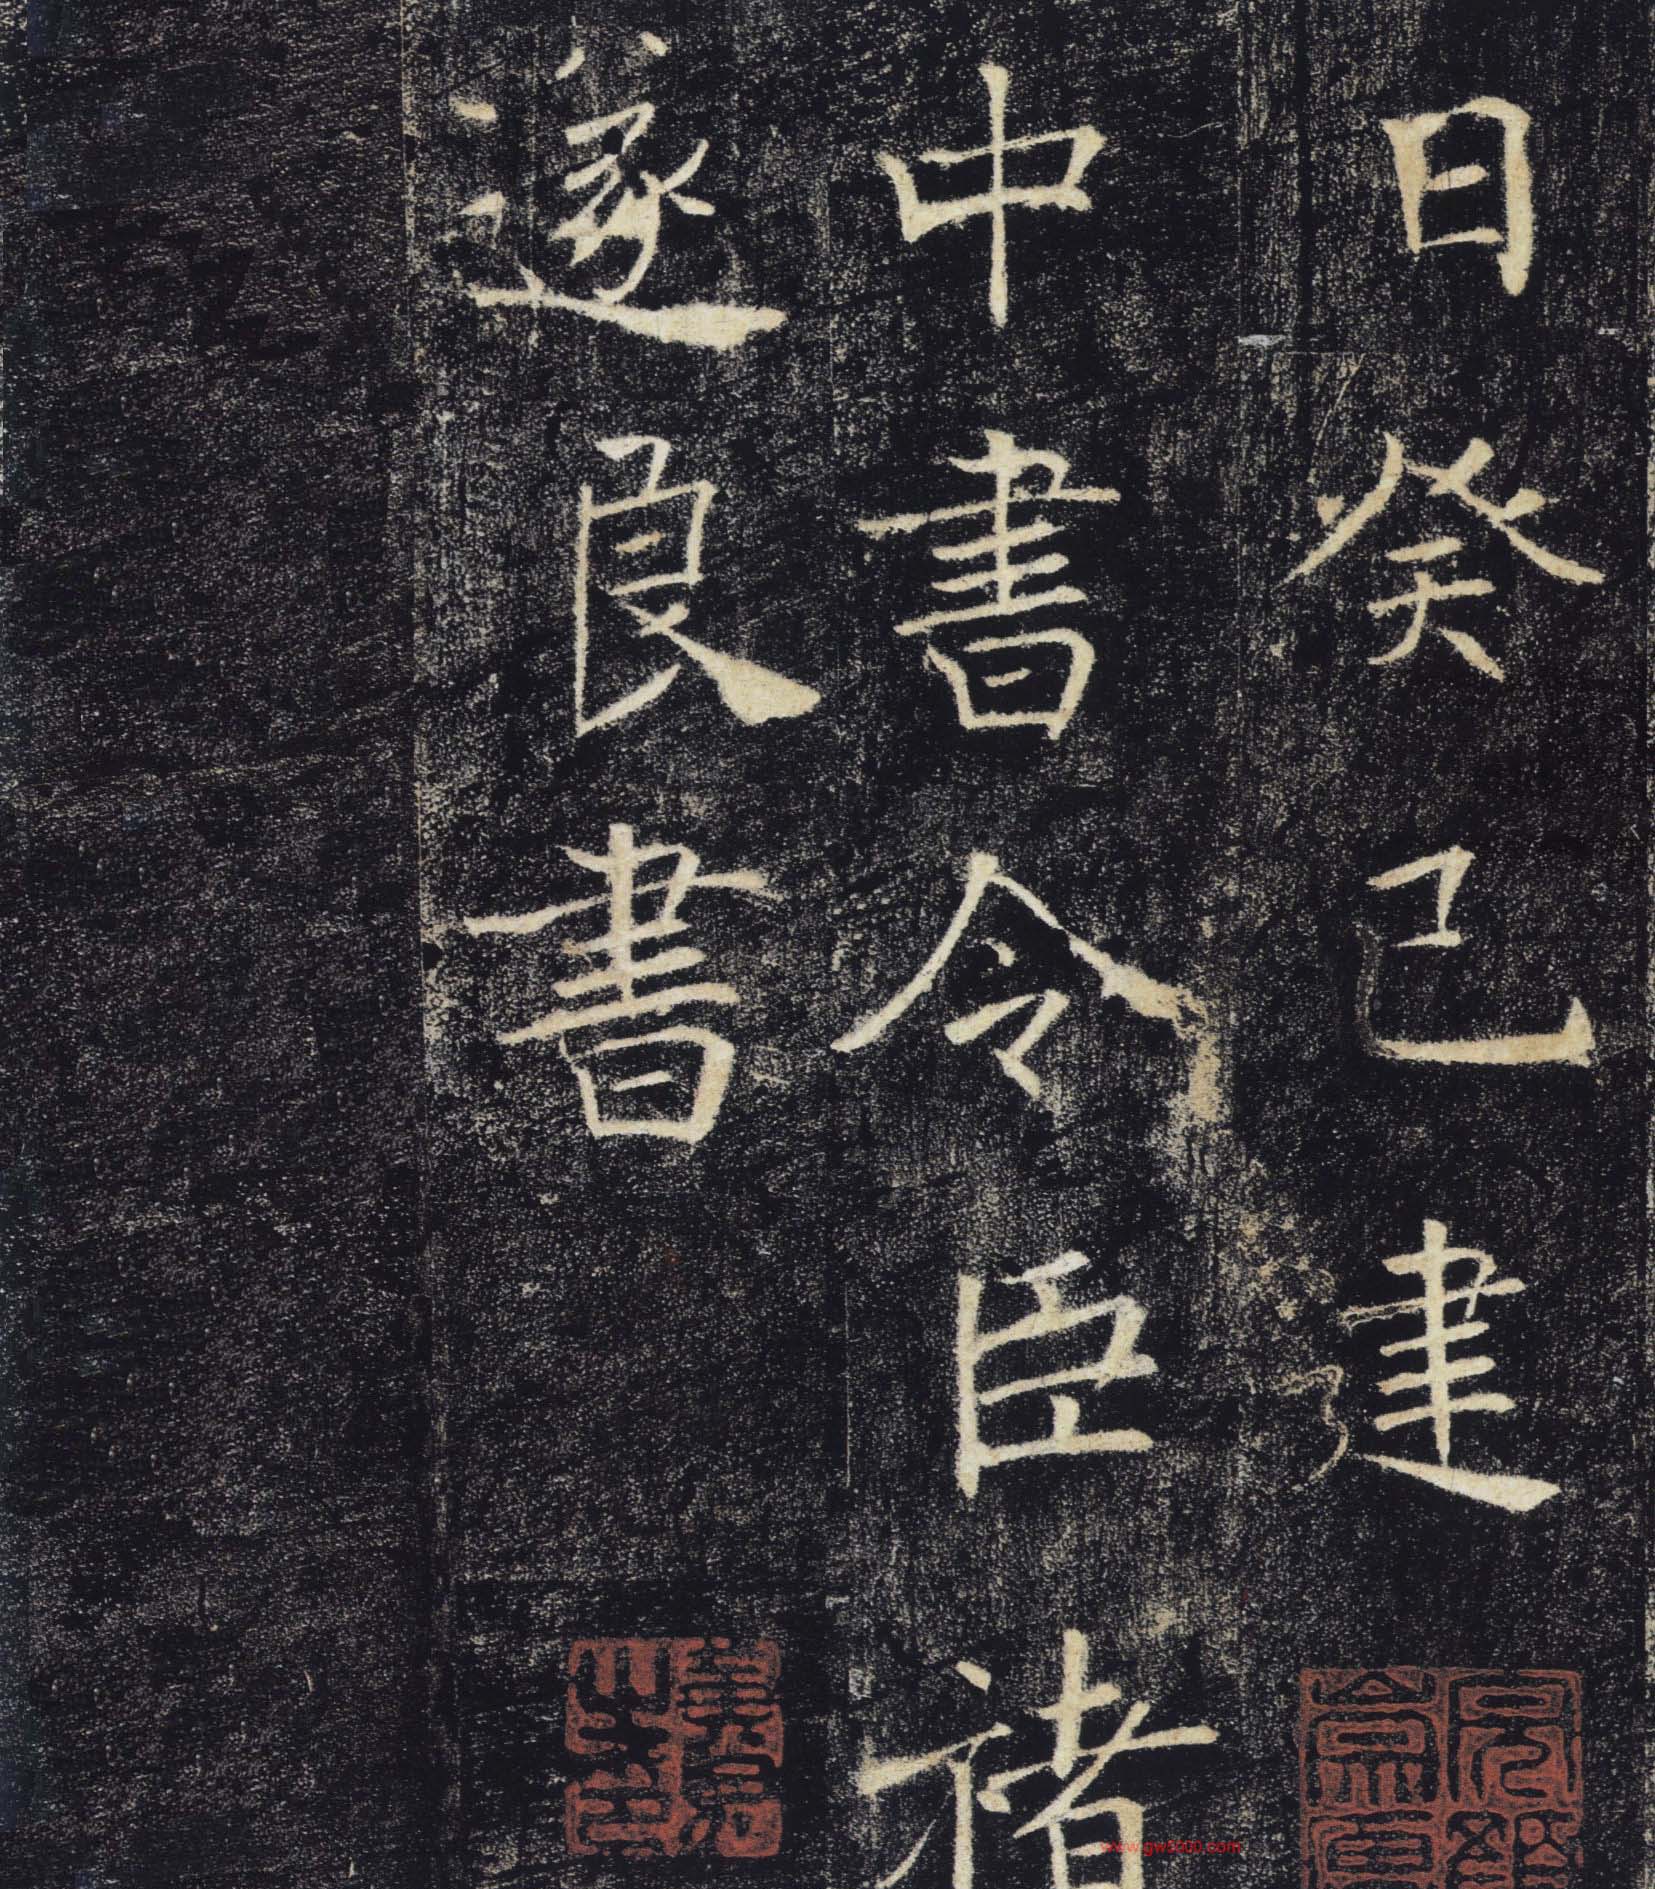 日癸已建
中書令臣褚
遂良書
www.gw5000.com